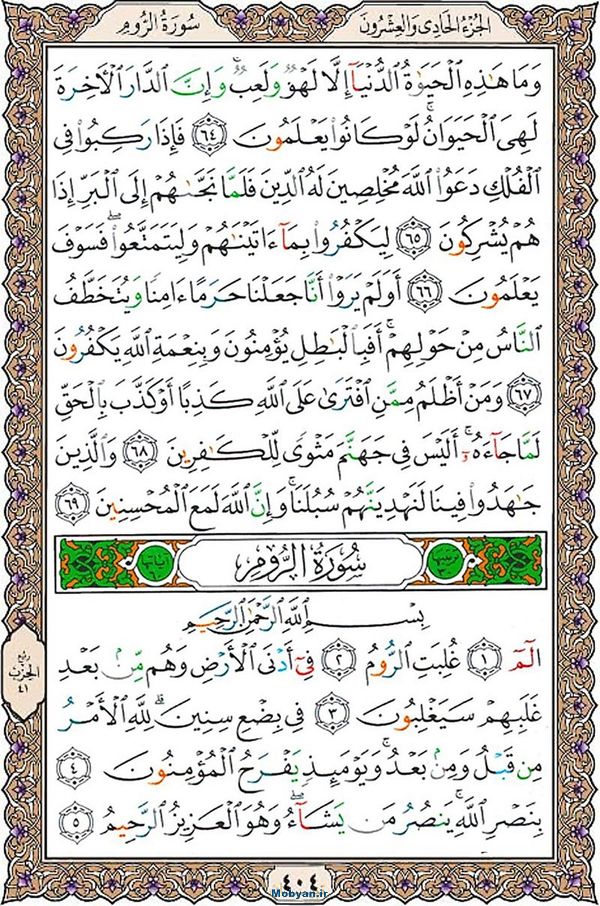 الجُزءُ الحَادِى وَالعِشرُونَ
سُورَةُ الرُّومِ
وَمَا هَٰذِهِ الْحَيَوٰةُ الدُّنْيَآ إِلَّا لَهْوٌ وَلَعِبٌ ۚ وَإِنَّ الدَّارَ الْأَخِرَةَ
لَهِىَ الْحَيَوَانُ ۚ لَوْ كَانُوا يَعْلَمُونَ ٦٤ فَإِذَا رَكِبُوا فِى
الْفُلْكِ دَعَوُا اللَّهَ مُخْلِصِينَ لَهُ الدِّينَ فَلَمَّا نَجَّىٰهُمْ إِلَى الْبَرِّ إِذَا
هُمْ يُشْرِكُونَ ٦٥ لِيَكْفُرُوا بِمَآ ءَاتَيْنَٰهُمْ وَلِيَتَمَتَّعُوا ۖ فَسَوْفَ
يَعْلَمُونَ ٦٦ أَوَلَمْ يَرَوْا أَنَّا جَعَلْنَا حَرَمًا ءَامِنًا وَيُتَخَطَّفُ
النَّاسُ مِنْ حَوْلِهِمْ ۚ أَفَبِالْبَٰطِلِ يُؤْمِنُونَ وَبِنِعْمَةِ اللَّهِ يَكْفُرُونَ
٦٧ وَمَنْ أَظْلَمُ مِمَّنِ افْتَرَىٰ عَلَى اللَّهِ كَذِبًا أَوْ كَذَّبَ بِالْحَقِّ
لَمَّا جَآءَهُۥٓ ۚ أَلَيْسَ فِى جَهَنَّمَ مَثْوًى لِّلْكَٰفِرِينَ ٦٨ وَالَّذِينَ
جَٰهَدُوا فِينَا لَنَهْدِيَنَّهُمْ سُبُلَنَا ۚ وَإِنَّ اللَّهَ لَمَعَ الْمُحْسِنِينَ ٦٩
سُورَةُ الرُّومِ
بِسْمِ اللَّهِ الرَّحْمَٰنِ الرَّحِيمِ
الٓمٓ ١ غُلِبَتِ الرُّومُ ٢ فِىٓ أَدْنَى الْأَرْضِ وَهُمْ مِّنْ بَعْدِ
غَلَبِهِمْ سَيَغْلِبُونَ ٣ فِى بِضْعِ سِنِينَ ۗ لِلَّهِ الْأَمْرُ
مِنْ قَبْلُ وَمِنْ بَعْدُ ۚ وَيَوْمَئِذٍ يَفْرَحُ الْمُؤْمِنُونَ ٤
بِنَصْرِ اللَّهِ ۚ يَنْصُرُ مَنْ يَشَآءُ ۖ وَهُوَ الْعَزِيزُ الرَّحِيمُ ٥
ربع
الحزب
٤١
٤٠٤
Mobyan.ir